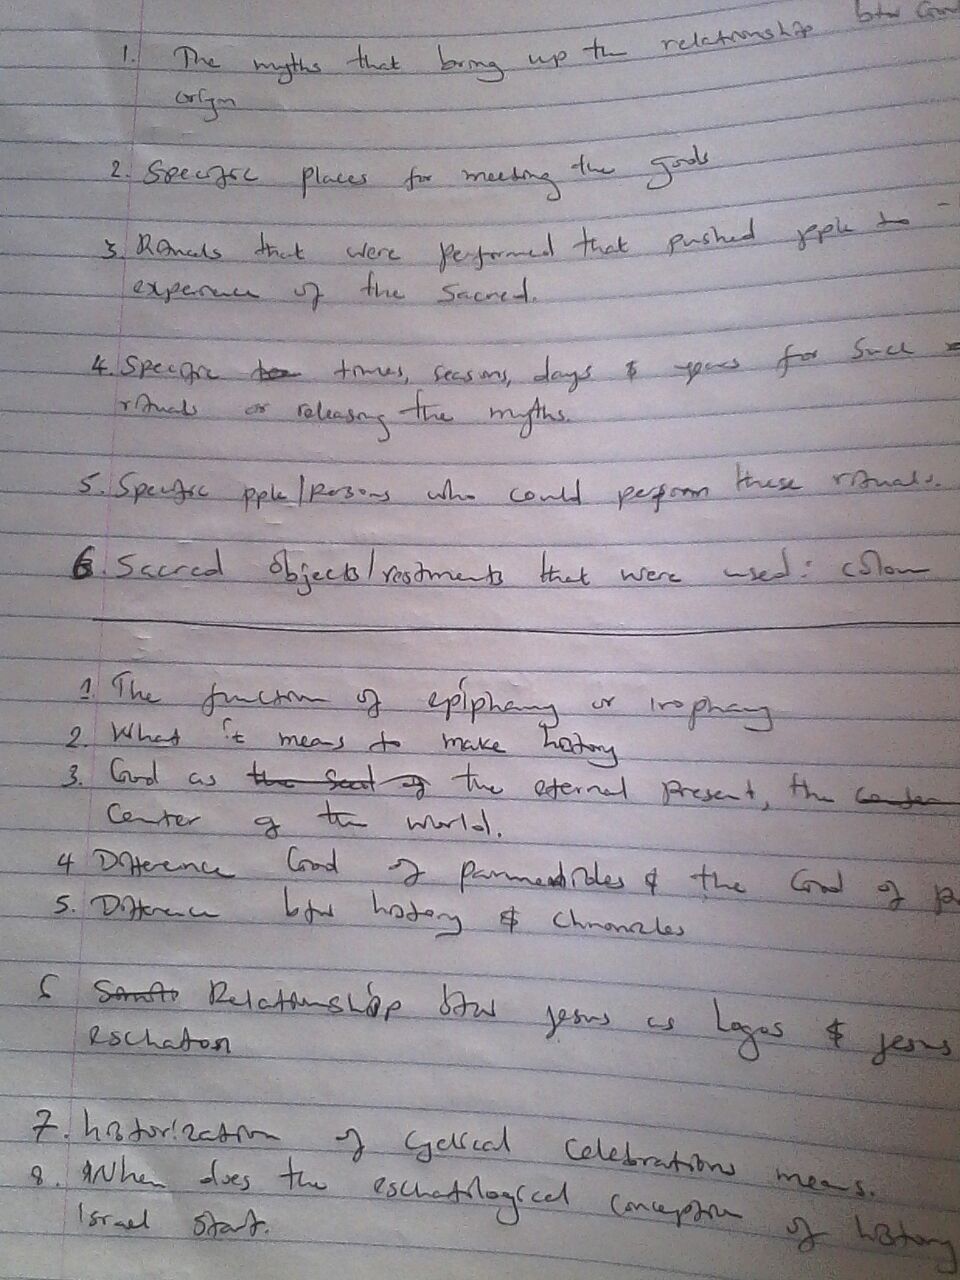 1. The myths that bring up the relationship btw God
origin
2. Specific places for meeting the gods
3. Rituals that were performed that pushed pple to -
experience of the sacred.
4. Specific times, seasons, days & years for such
rituals or releasing the myths.
5. Specific pple/Persons who could perform these rituals.
6. Sacred objects/vestments that were used: colour
1. The function of epiphany or irophany
2. What it means to make history
3. God as the seat of the eternal present, the center
Center of the world.
4 Difference God of parmenides & the God of
5. Difference btw history & Chronicles
6 Relationship btw jesus as Logos & jesus
Eschaton
7. historization of cyclical celebrations means.
8. When does the eschatological conception of history
Israel start.